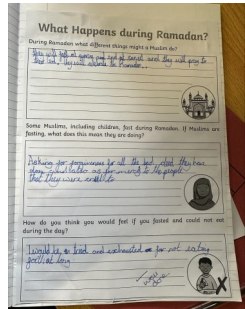 What Happens during Ramadan?
During Ramadan what different things might a Muslim do?
they will fast at spring and end at sunset and they will pray to
their God, They will celebrate to Ramadan.
Some Muslims, including children, fast during Ramadan. If Muslims are
fasting, what does this mean they are doing?
Asking for forgiveness for all the bad deed they have
done and also as for mercy to the people
that they were
How do you think you would feel if you fasted and could not eat
during the day?
I would be tired and exhausted for not eating
for that long